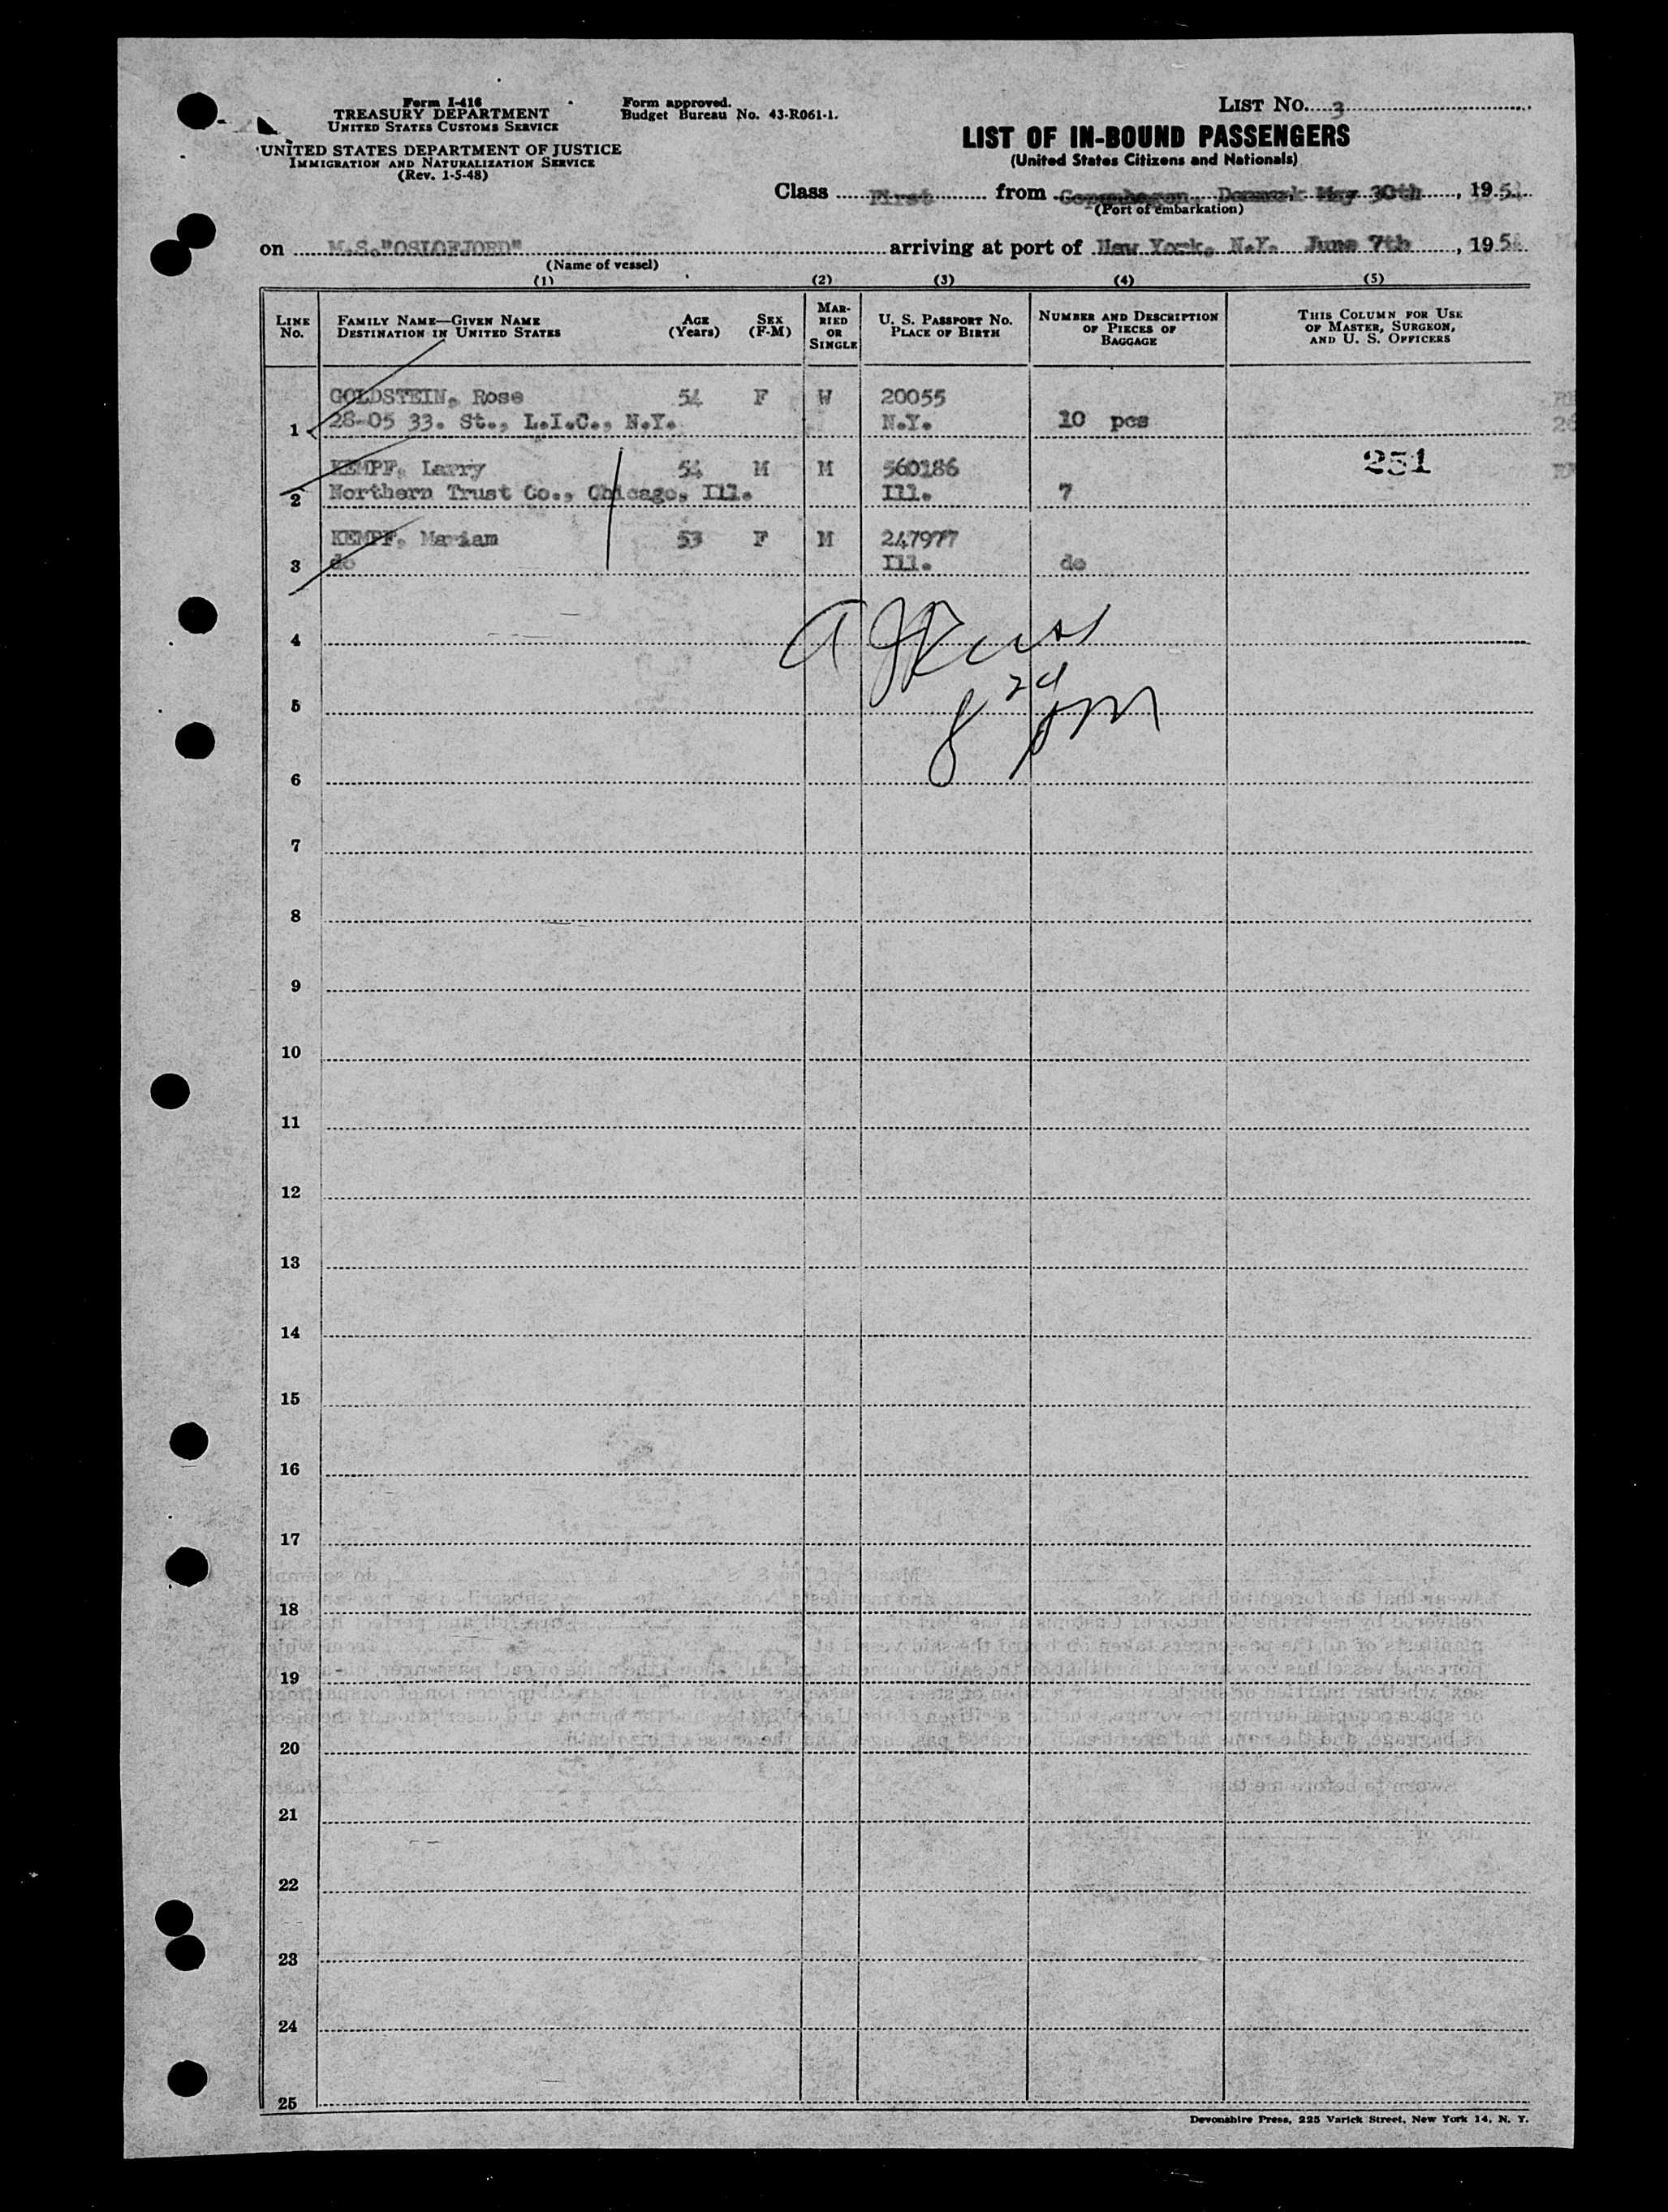 Form I-416
TREASURY DEPARTMENT
UNITED STATES CUSTOMS SERVICE
UNITED STATES DEPARTMENT OF JUSTICE
IMMIGRATION AND NATURALIZATION SERVICE
(Rev. 1-5-48)
Form approved.
Budget Bureau No. 43-R061-1.
LIST No. 3
LIST OF IN-BOUND PASSENGERS
(United States Citizens and Nationals)
Class First from Copenhagen, Denmark May 30th, 195
(Port of embarkation)
on M.S."OSLOFJORD" arriving at port of New York, N.Y. June 7th, 195
(Name of vessel)
(1) (2) (3) (4) (5)
LINE No. FAMILY NAME—GIVEN NAME DESTINATION IN UNITED STATES AGE (Years) SEX (F-M) MARRIED OR SINGLE U. S. PASSPORT No. PLACE OF BIRTH NUMBER AND DESCRIPTION OF PIECES OF BAGGAGE THIS COLUMN FOR USE OF MASTER, SURGEON, AND U. S. OFFICERS
GOLDSTEIN, Rose 54 F W 20055
1 28-05 33. St., L.I.C., N.Y. N.Y. 10 pcs
KEMPF, Larry 54 M M 560186 231
2 Northern Trust Co., Chicago, Ill. Ill. 7
KEMPF, Mariam 53 F M 247977
3 do Ill. do
4
5
8 24 pm
6
7
8
9
10
11
12
13
14
15
16
17
18
19
20
21
22
23
24
25
Devonshire Press, 225 Varick Street, New York 14, N. Y.